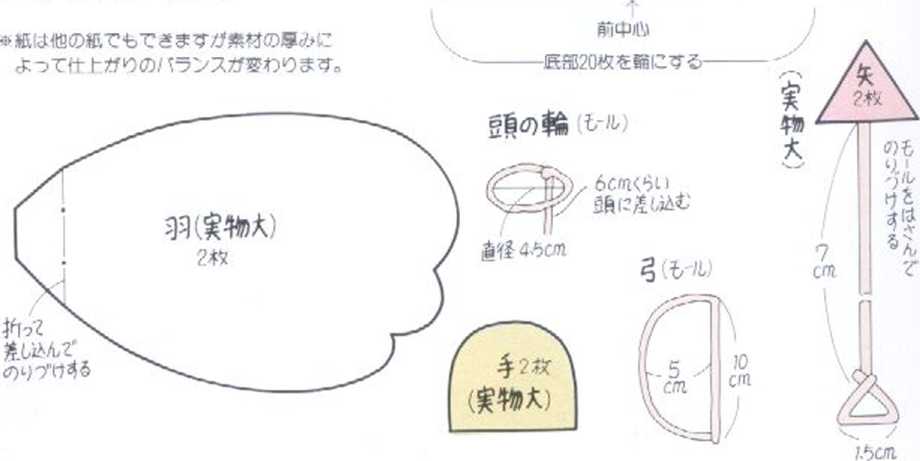 ※紙は他の紙でもできますが素材の厚みに
よって仕上がりのバランスが変わります。
前中心
底部20枚を輪にする
羽(実物大)
2枚
折って
差し込んで
のりづけする
頭の輪(モール)
6cmくらい
頭に差し込む
直径4.5cm
手2枚
(実物大)
弓(モール)
5
cm
10
cm
(実物大)
矢
2枚
モールをはさんで
のりづけする
7
cm
1.5cm